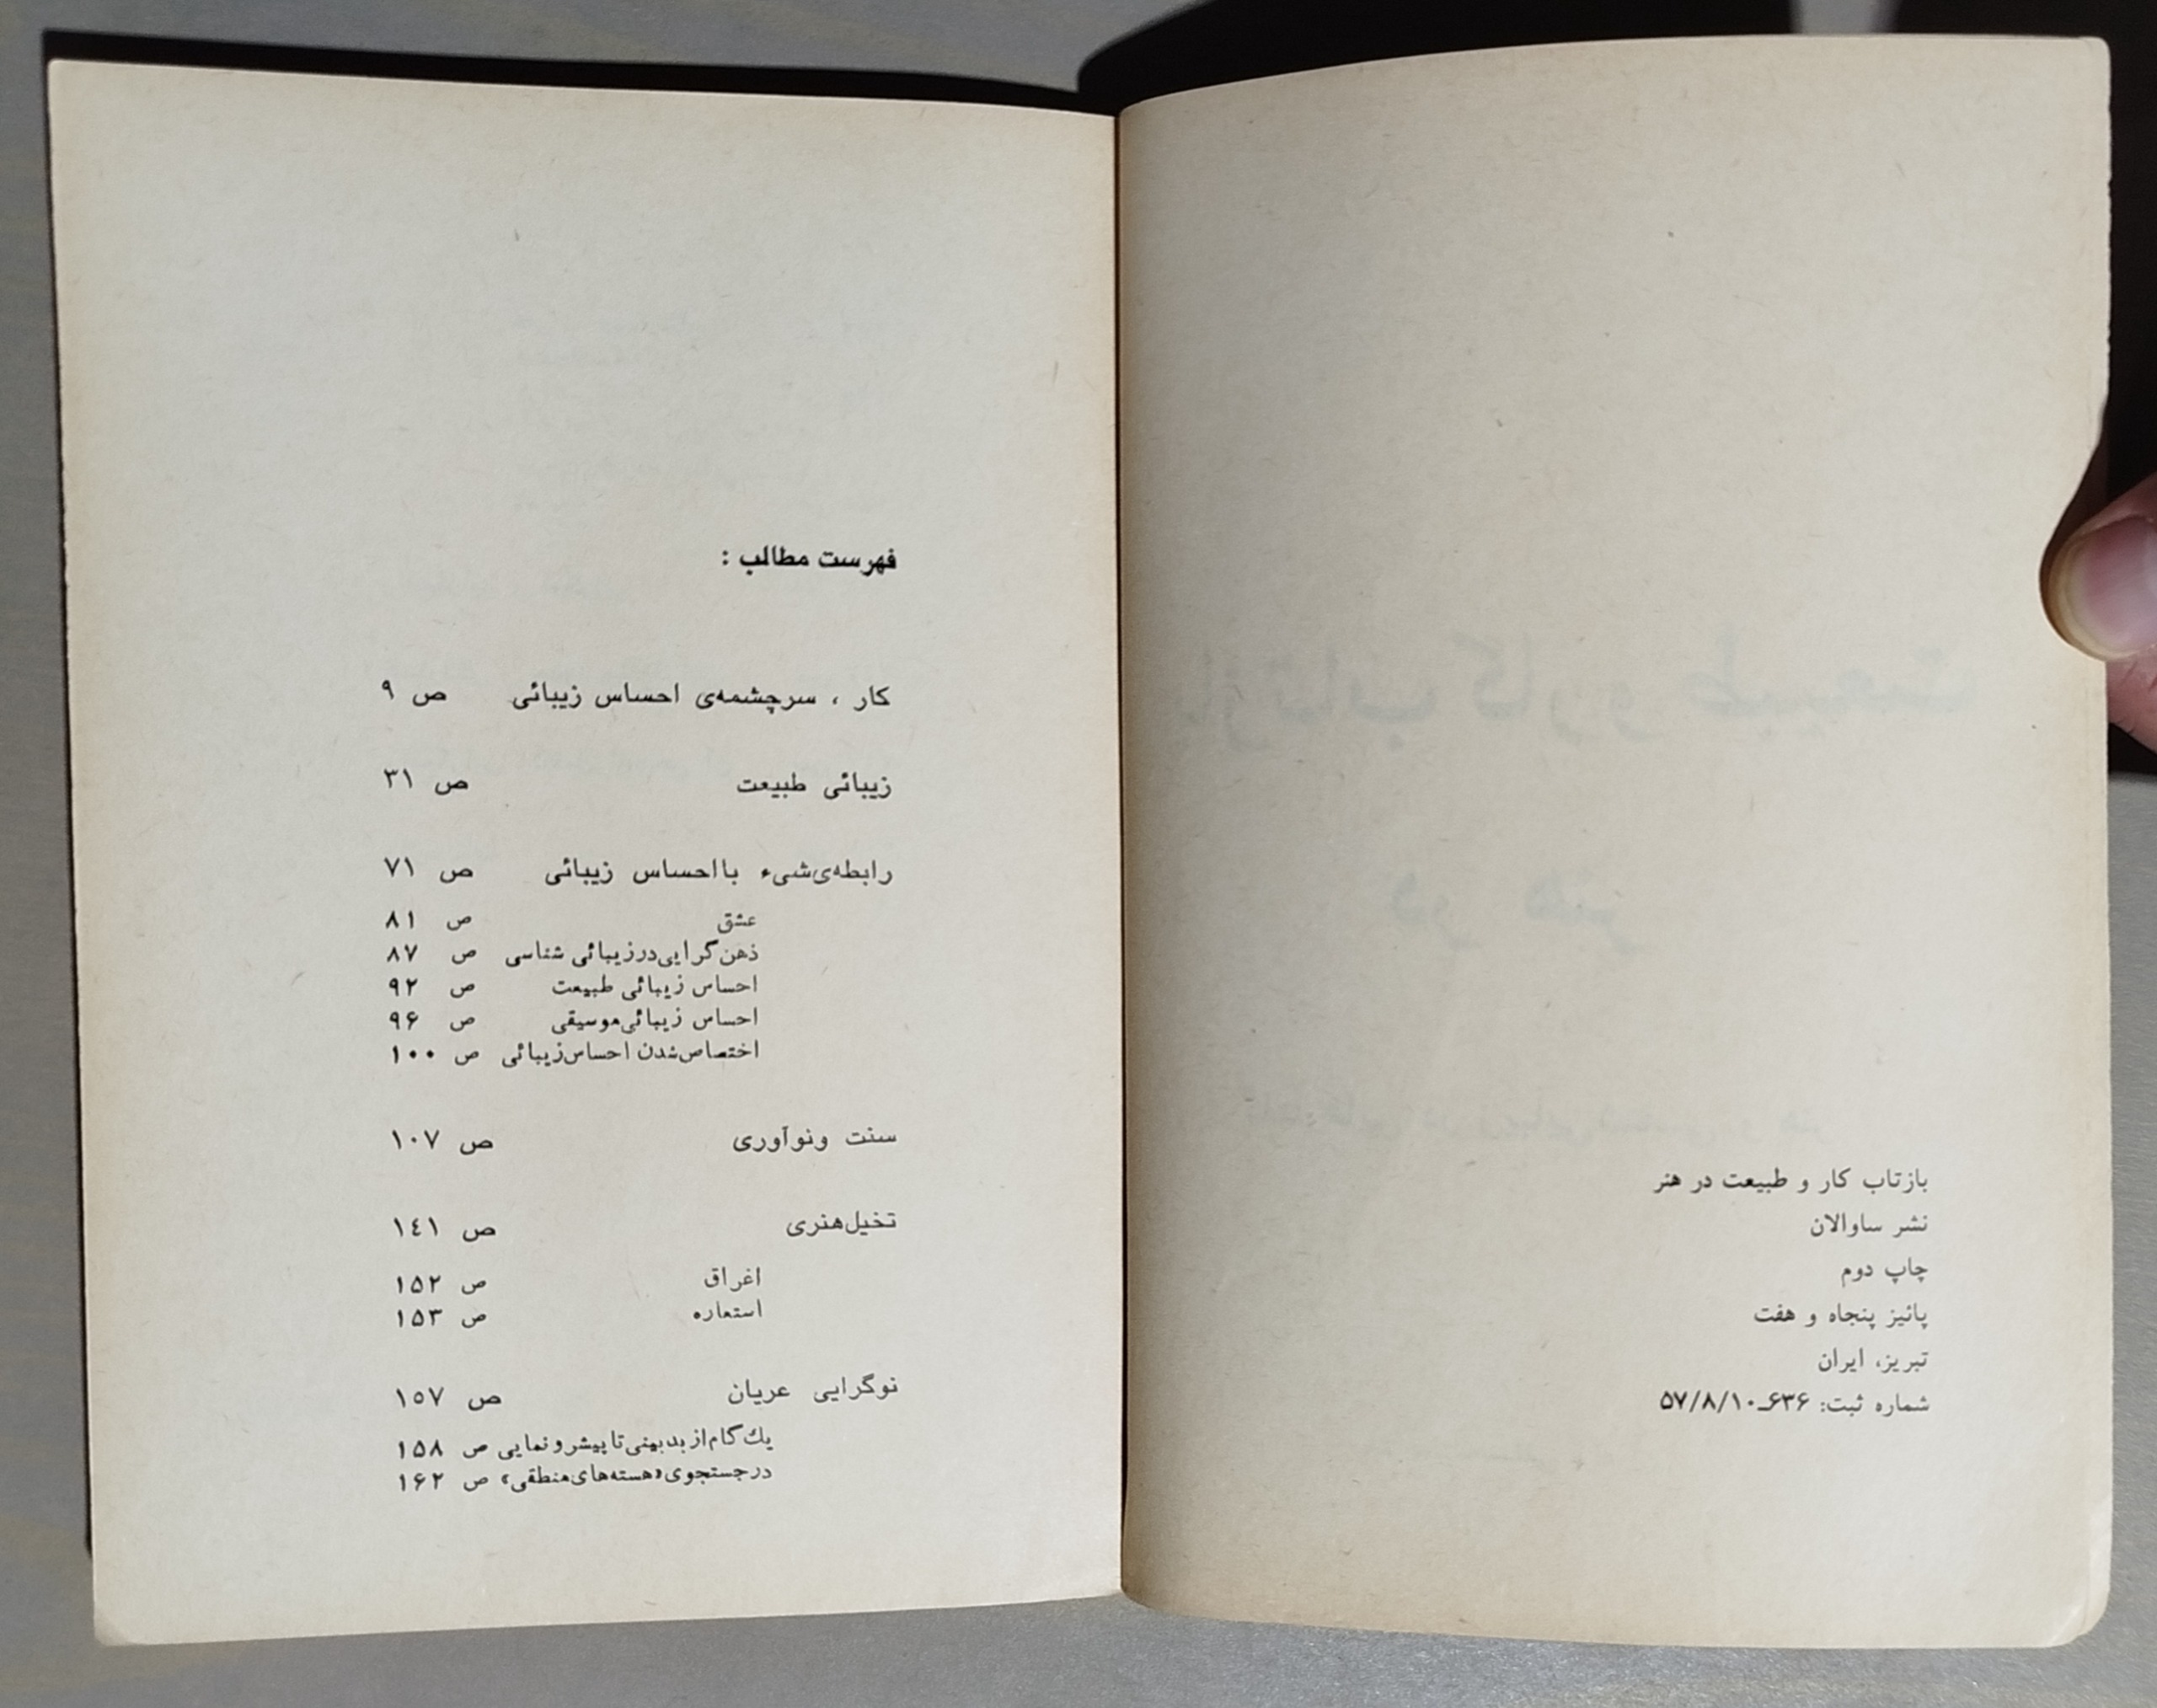 بازتاب کار و طبیعت در هنر
نشر ساوالان
چاپ دوم
پائیز پنجاه و هفت
تبریز، ایران
شماره ثبت: ۶۳۶ــ۵۷/۸/۱۰
فهرست مطالب :
کار ، سرچشمه‌ی احساس زیبائی ص ۹
زیبائی طبیعت ص ۳۱
رابطه‌ی شیء با احساس زیبائی ص ۷۱
عشق ص ۸۱
ذهن گرایی در زیبائی شناسی ص ۸۷
احساس زیبائی طبیعت ص ۹۲
احساس زیبائی موسیقی ص ۹۶
اختصاص شدن احساس زیبائی ص ۱۰۰
سنت و نوآوری ص ۱۰۷
تخیل هنری ص ۱٤۱
اغراق ص ۱۵۲
استعاره ص ۱۵۳
نوگرایی عریان ص ۱۵۷
یك گام از بدبینی تا پیشرو نمایی ص ۱۵۸
در جستجوی «هسته‌های منطقی» ص ۱۶۲